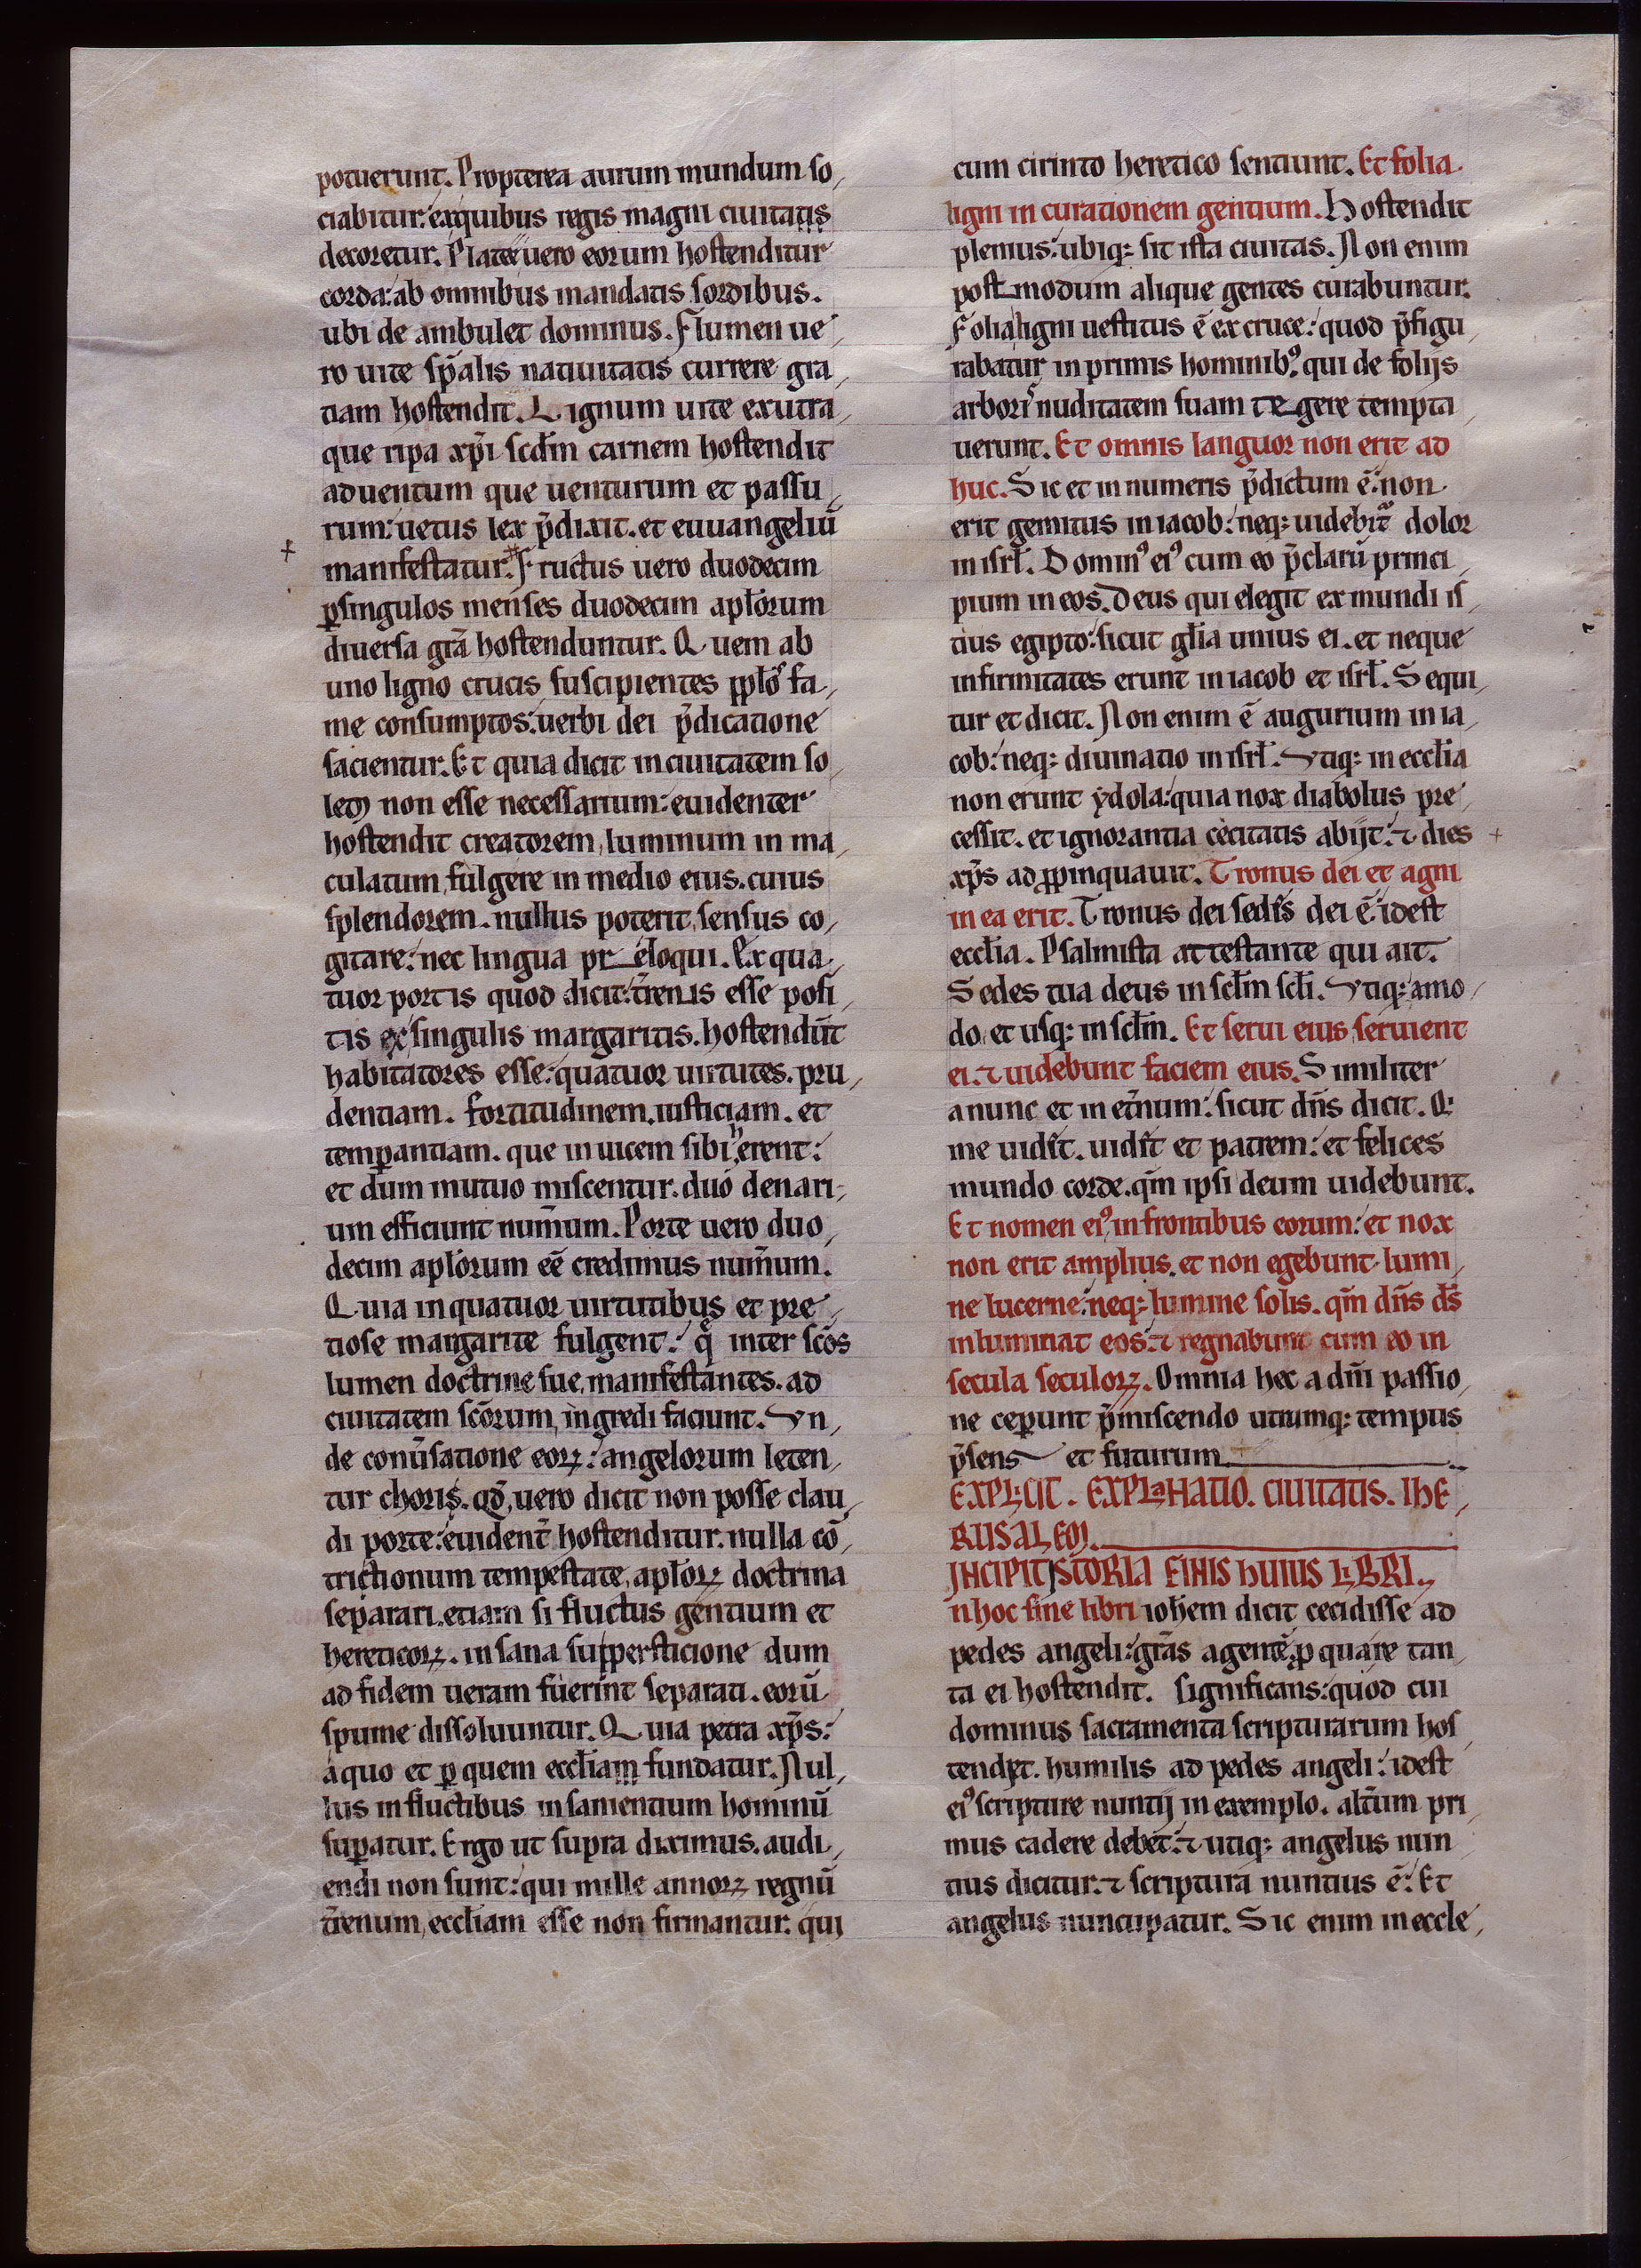 potuerunt. Propterea aurum mundum so,
ciabitur: exquibus regis magni ciuitatis
decoretur. Platee uero eorum hostenditur
corda: ab omnibus mandatis sordibus.
ubi de ambulet dominus. Flumen ue,
ro uite sp̄alis natiuitatis currere gra,
tiam hostendit. Lignum uite exutra,
que ripa xp̄i scđm carnem hostendit
aduentum que uenturum et passu,
rum: uetus lex p̄dixit. et euuangeliū
manifestatur. Fructus uero duodecim
ꝑsingulos menses duodecim apłorum
diuersa grā hostenduntur. Quem ab
uno ligno crucis suscipientes ppłos fa,
me consumptos: uerbi dei p̄dicatione
sacientur. Et quia dicit inciuitatem so,
lem non esse necessarium: euidenter
hostendit creatorem luminum in ma,
culatum fulgere in medio eius. cuius
splendorem. nullus poterit sensus co,
gitare: nec lingua pr eloqui. Ex qua,
tuor portis quod dicit: t̄renis esse posi,
tis ex singulis margaritis. hostendūt
habitatores esse: quatuor uirtutes. pru,
dentiam. fortitudinem. iusticiam. et
temꝑantiam. que inuicem sibi herent:
et dum mutuo miscentur. duo denari,
um efficiunt num̄um. Porte uero duo,
decim apłorum eē credimus num̄um.
Quia inquatuor uirtutibus et pre,
tiose margarite fulgent: q̊ inter scōs
lumen doctrine sue, manifestantes. ad
ciuitatem scōrum, ingredi faciunt. Vn,
de conūsatione eoꝝ: angelorum leten,
tur choris. qđ uero dicit non posse clau,
di porte: euident̄ hostenditur. nulla cō,
trictionum tempestate, apłoꝝ doctrina
separari. etiam si fluctus gentium et
hereticoꝝ. insana suppersticione dum
ad fidem ueram fuerint separati. eorū
spume dissoluuntur. Quia petra xp̄s:
aquo et ꝑ quem eccłiam fundatur. Nul,
lus influctibus insanientium hominū
suꝑatur. Ergo ut supra diximus. audi,
endi non sunt: qui mille annoꝝ regnū
t̄renum, eccłiam esse non firmantur. qui
cum cirinto heretico sentiunt. Et folia
ligni in curationem gentium. Hostendit
plenius: ubiq; sit ista ciuitas. Non enim
post modum alique gentes curabuntur.
Folia ligni uestitus ē ex cruce: quod p̄figu,
rabatur in primis hominibꝰ. qui de folijs
arboris nuditatem suam te gere tempta,
uerunt. Et omnis languor non erit ad
huc. Sic et in numeris p̄dictum ē: non
erit gemitus in iacob: neq; uidebit᷑ dolor
in isrł. Dominꝰ eiꝰ cum eo p̄clarū princi,
pium in eos. Deus qui elegit ex mundi is,
tius egipto: sicut głia unius ei. et neque
infirmitates erunt in iacob et isrł. Sequi,
tur et dicit. Non enim ē augurium in ia,
cob: neq; diuinatio in isrł. Vtiq; in eccłia
non erunt ẏdola: quia nox diabolus pre,
cessit. et ignorantia cecitatis abijt: ⁊ dies
xp̄s ad ꝓpinquauit. Tronus dei et agni
in ea erit. Tronus dei sedis dei ē: idest
eccłia. Psalmista attestante qui ait.
Sedes tua deus in scłm scłi. Vtiq; amo,
do. et usq; in scłm. Et serui eius seruient
ei. ⁊ uidebunt faciem eius. Similiter
anunc et in et̄num: sicut dn̄s dicit. Q;
me uidit. uidit et patrem: et felices
mundo corde. qm̄ ipsi deum uidebunt.
Et nomen eiꝰ, in frontibus eorum: et nox
non erit amplius. et non egebunt lumi,
ne lucerne: neq; lumine solis. qm̄ dn̄s ds̄
inluminat eos: ⁊ regnabunt cum eo in
secula seculoꝝ. Omnia hec a dn̄i passio,
ne ceꝑunt p̄miscendo utrumq; tempus
p̄sens et futurum
EXPLICIT. EXPLANATIO. CIUITATIS. IHE,
RUSALEM.
INCIPIT ISTORIA FINIS HUIUS LIBRI.
n hoc fine libri ioħem dicit cecidisse ad
pedes angeli: grās agente, ꝓ quare tan,
ta ei hostendit. significans: quod cui
dominus sacramenta scripturarum hos,
tendit. humilis ad pedes angeli: idest
eiꝰ scripture nuntij in exemplo. alt̄um pri,
mus cadere debet: ⁊ utiq; angelus nun
tius dicitur. ⁊ scriptura nuntius ē: Et
angelus nuncupatur. Sic enim in eccle,